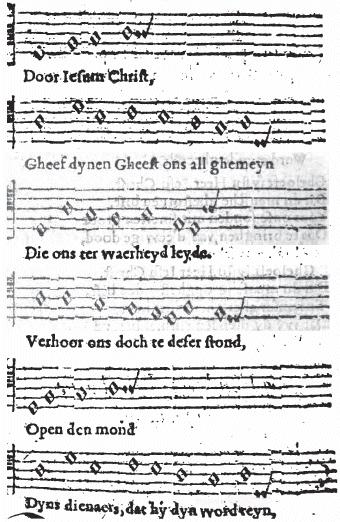 Door Iesum Christ,
Gheef dynen Gheest ons all ghemeyn
Die ons ter waerheyd leyde.
Verhoor ons doch te deser stond,
Open den mond
Dyns dienaers, dat hy dyn woord reyn,